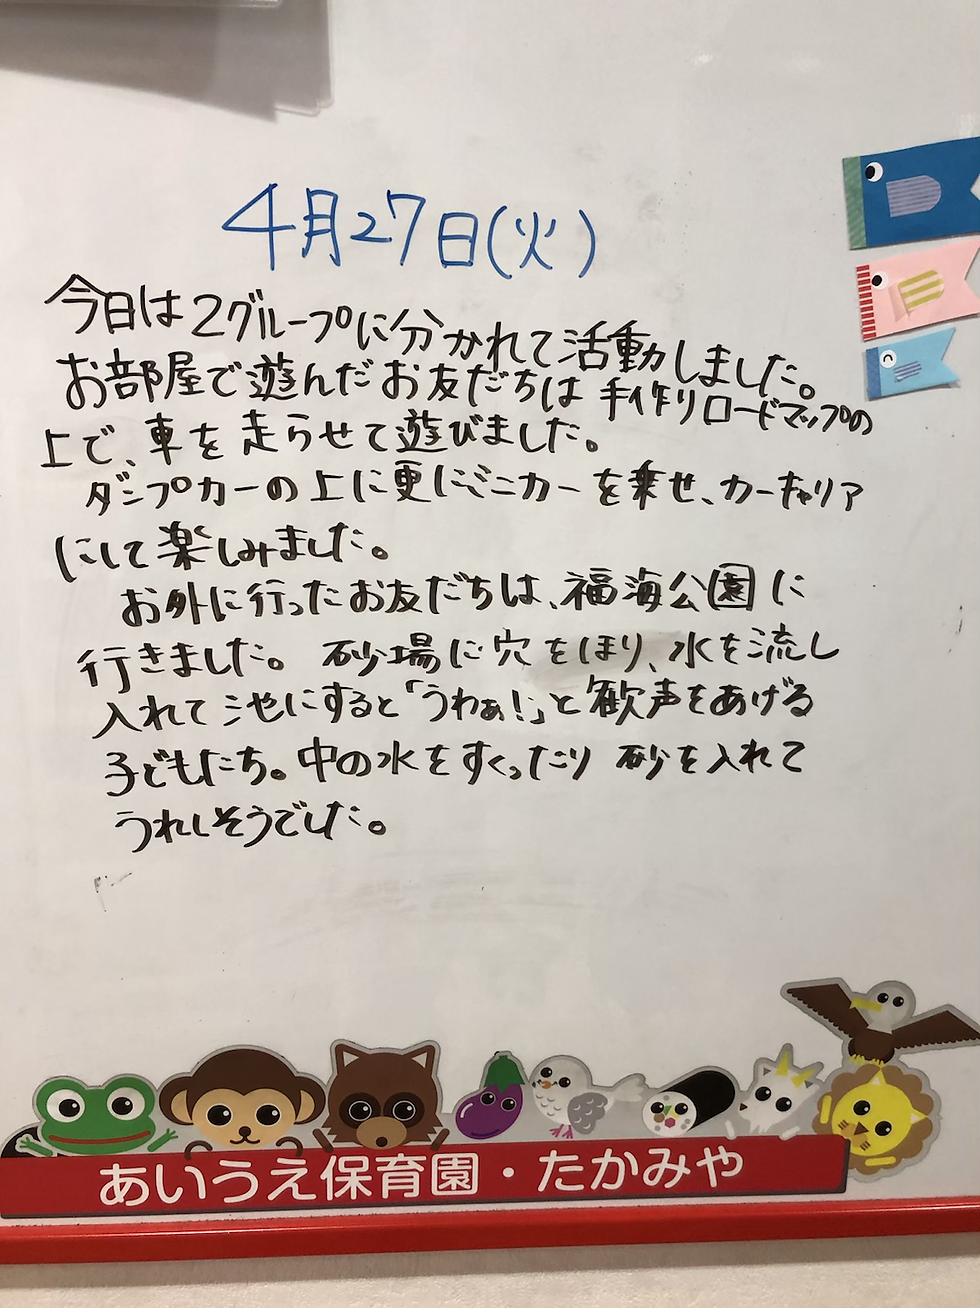 4月27日(火)
今日は2グループに分かれて活動しました。
お部屋で遊んだお友だちは手作りロードマップの
上で、車を走らせて遊びました。
ダンプカーの上に更にミニカーを乗せ、カーキャリア
にして楽しみました。
お外に行ったお友だちは、福海公園に
行きました。砂場に穴をほり、水を流し
入れて池にすると「うわぁ!」と歓声をあげる
子どもたち。中の水をすくったり砂を入れて
うれしそうでした。
あいうえ保育園・たかみや